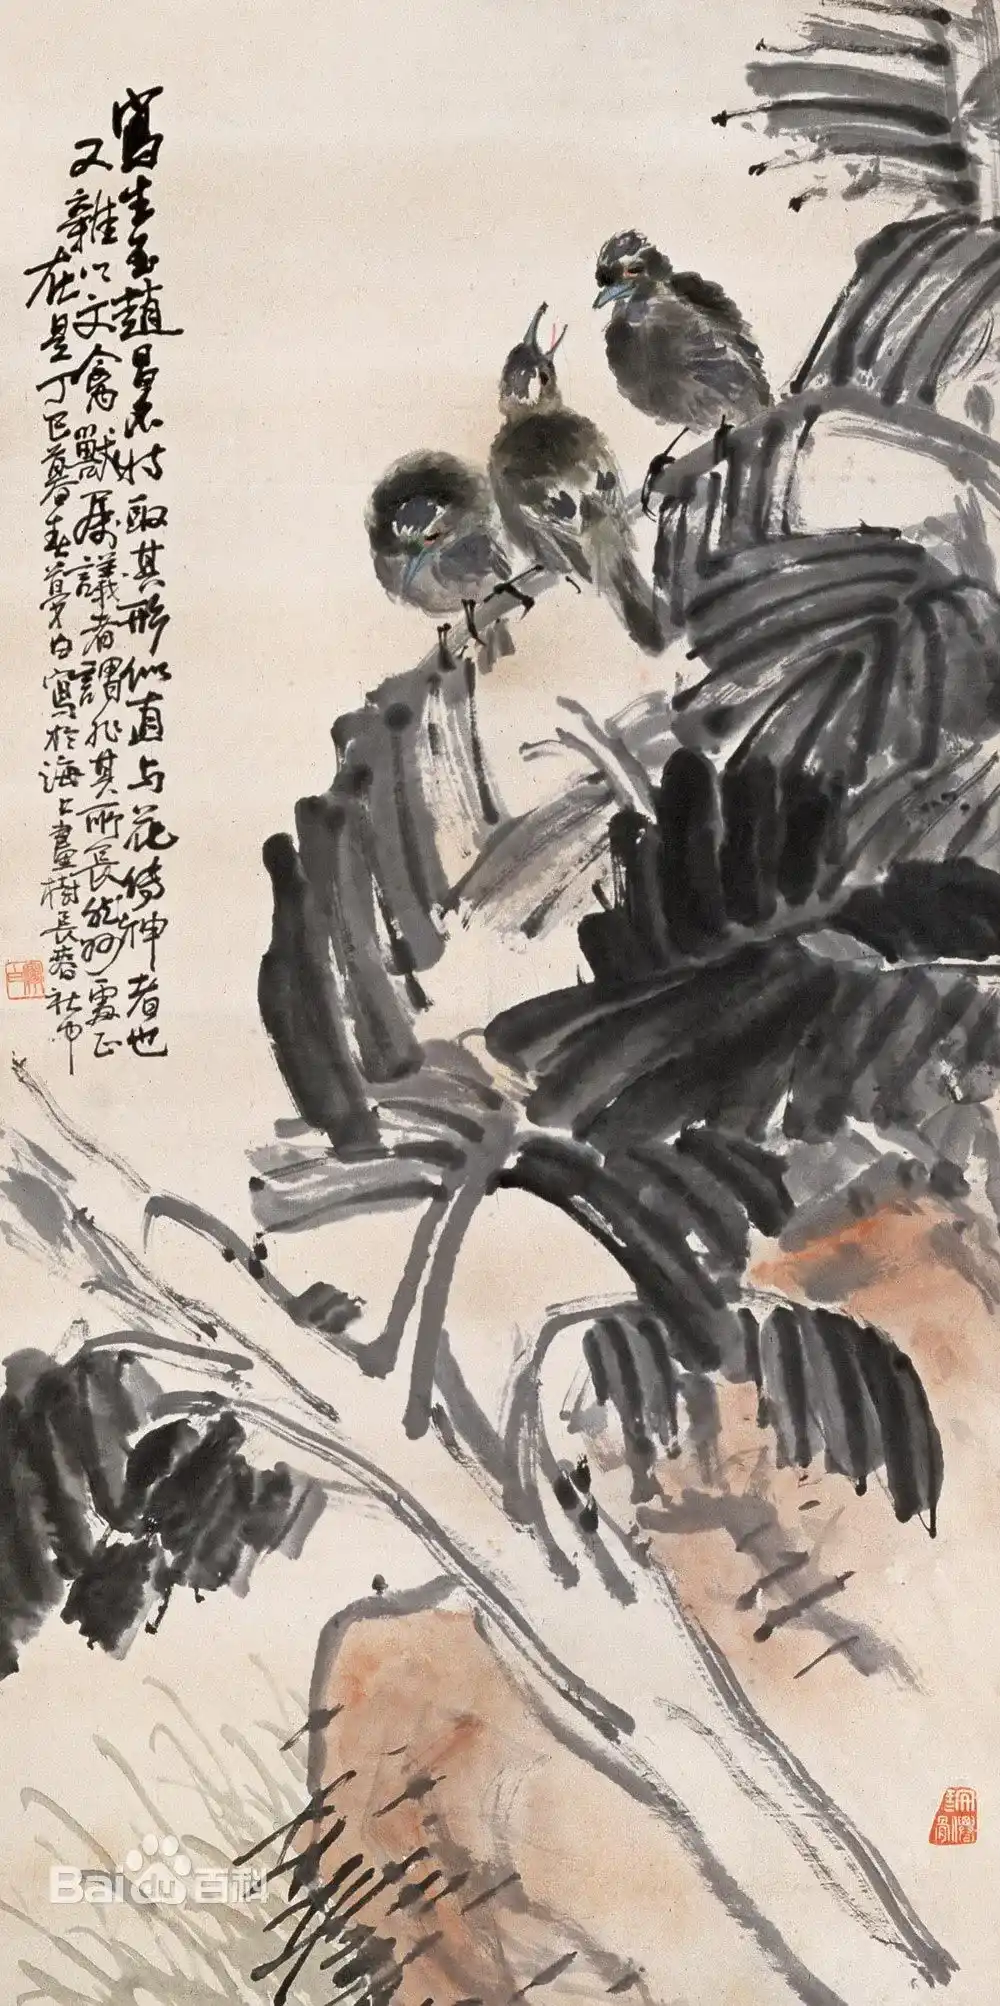 寫生至趙昌不特取其形似直与花傳神者也
又雜以文禽獸屬議者謂非其所長然妙處正
在是丁巳暮春夢白寫於海上畫樹長春社中
Bai百科